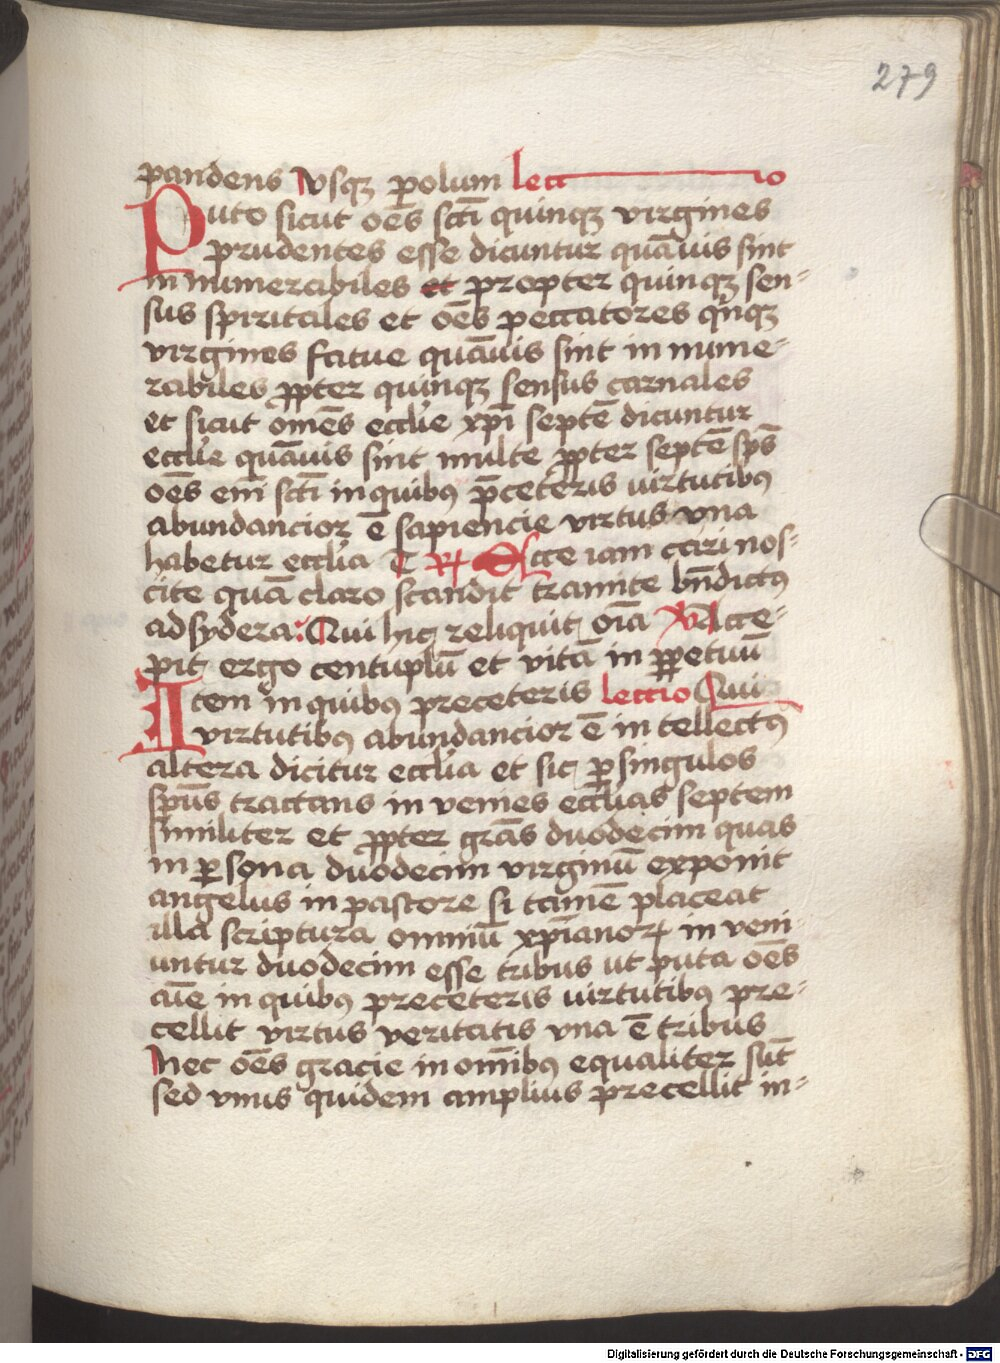 279
pandens vsqꝫ ꝑolum lectio
Puto sicut oēs sc̄ti quinqꝫ virgines
prudentes esse dicuntur quāuis sint
in numerabiles et propter quinqꝫ sen-
sus spiritales et oēs peccatores qⁱnqꝫ
virgines fatue quāuis sint in nume-
rabiles ꝓpter quinqꝫ sensus carnales
et sicut om̄es eccl̄ie xp̄i septē dicuntur
eccl̄ie quāuis sint multe ꝓpter septē sp̄s
oēs em̄ sc̄ti in quibꝯ p̄ceteris uirtutibꝯ
abundancior ē sapiencie virtus vna
habetur eccl̄ia ē ℟ Ecce iam cari nos-
cite quā claro scandit tramite bn̄dictꝯ
ad sydera: Qui hic reliquit om̄ia V Acce-
pit ergo centuplū et vitā in ꝑpetuū
Item in quibꝯ preceteris lectio Qui
virtutibꝯ abundancior ē in tellectꝯ
altera dicitur eccl̄ia et sic ꝑ singulos
sp̄us tractans in venies eccl̄ias septem
similiter et ꝓpter grās duodecim quas
in ꝑsona duodecim virginū exponit
angelus in pastore si tamē placeat
illa scriptura omniū xp̄ianoꝝ in veni-
untur duodecim esse tribus ut puta oēs
aīe in quibꝯ preceteris uirtutibꝯ pre-
cellit virtus veritatis vna ē tribus
Nec oēs gracie in om̄ibꝯ equaliter sūt
sed vnus quidem amplius precellit in-
Digitalisierung gefördert durch die Deutsche Forschungsgemeinschaft - DFG